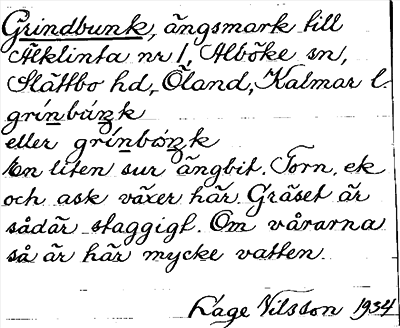 Grindbunk, ängsmark till
Älklinta nr 1, Alböke sn,
Slättbo hd, Öland, Kalmar l.
grínbúŋk
eller grínbóŋk
En liten sur ängbit. Torn, ek
och ask växer här. Gräset är
sådär staggigt. Om vårarna
så är här mycke vatten.
Åage Nilsson 1934